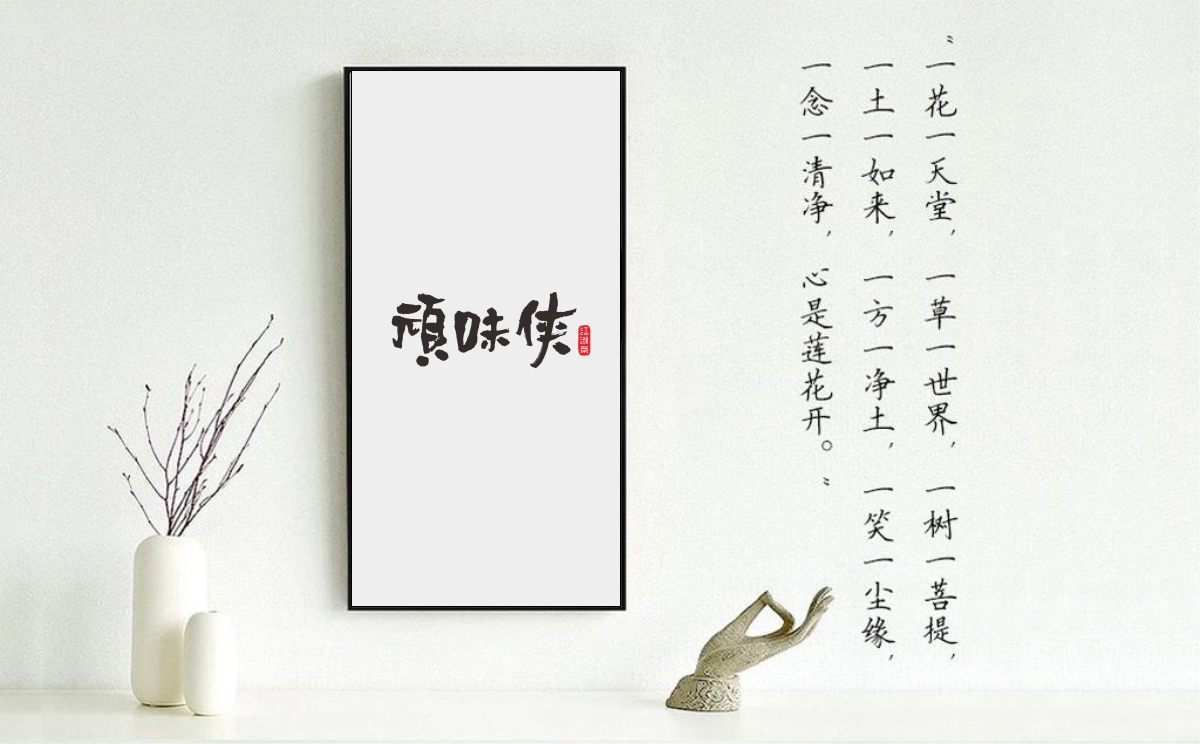 頑味俠
江湖菜
“一花一天堂，一草一世界，一树一菩提，
一土一如来，一方一净土，一笑一尘缘，
一念一清净，心是莲花开。”